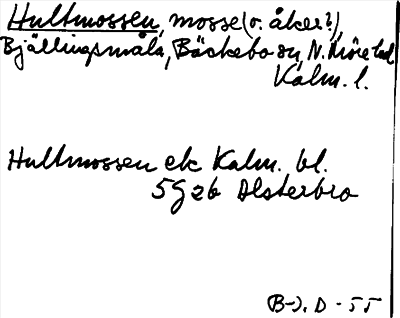 Hultmossen, mosse (o. åker?),
Bjällingsmåla, Bäckebo sn, N. Möre hd
Kalm. l.
Hultmossen ek Kalm. bl.
5G 2b Alsterbro
(B-). D - 55